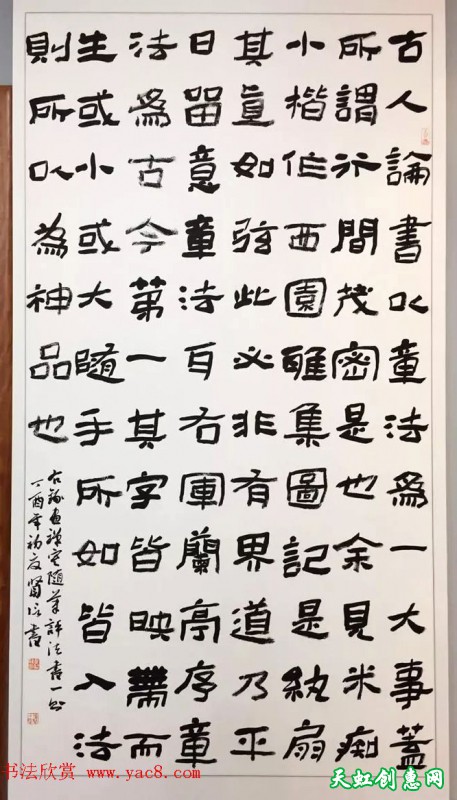 古人論書以章法爲一大事蓋
所謂行間茂密是也余見米痴
小楷作西園雅集圖記是紈扇
其直如弦此必非有界道乃平
日留意章法耳右軍蘭亭序章
法爲古今第一其字皆映帶而
生或小或大隨手所如皆入法
則所以為神品也
右錄畫禪室隨筆評法書一則
丁酉年初夏賢書
书法欣赏 www.yac8.com
天虹创惠网